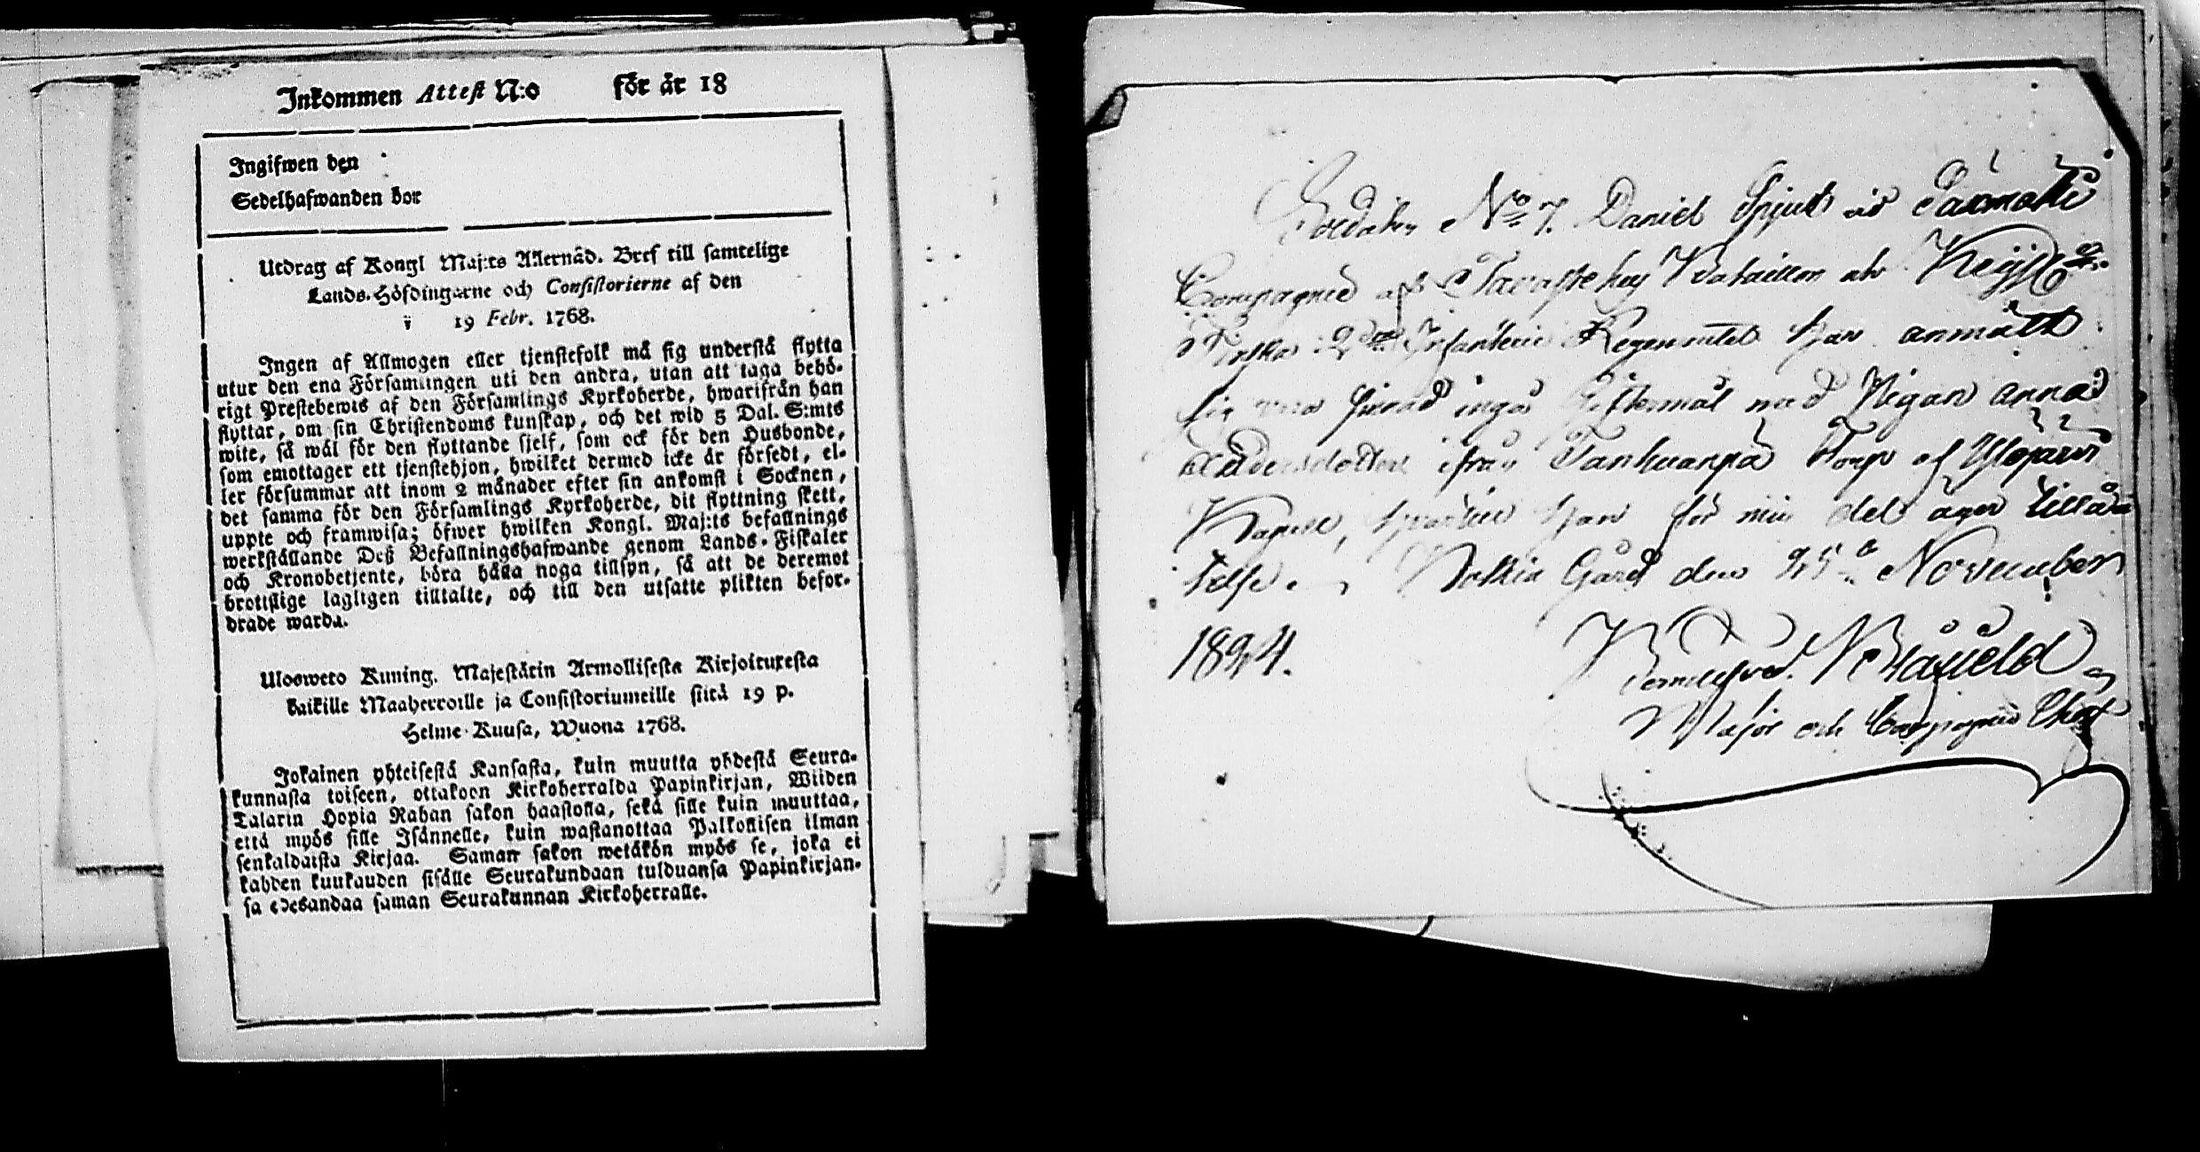 Inkommen Attest N:o för år 18
Ingifwen den
Sedelhafwanden bor
Utdrag af Kongl Maj:ts Allernåd. Bref till samtelige
Lands-Höfdingarne och Consistorierne af den
19 Febr. 1768.
Ingen af Allmogen eller tjenstefolk må sig understå flytta
utur den ena Församlingen uti den andra, utan att taga behö-
rigt Prestebewis af den Församlings Kyrkoherde, hwarifrån han
flyttar, om sin Christendoms kunskap, och det wid 5 Dal. S:mts
wite, så wäl för den flyttande sjelf, som ock för den Husbonde,
som emottager ett tjenstehjon, hwilket dermed icke är försedt, el-
ler försummar att inom 2 månader efter sin ankomst i Socknen,
det samma för den Församlings Kyrkoherde, dit flyttning skett,
uppte och framwisa; öfwer hwilken Kongl. Maj:ts befallnings
werkställande Deß Befallningshafwande genom Lands-Fiskaler
och Kronobetjente, böra hålla noga tillsyn, så att de deremot
brottslige lagligen tilltalte, och till den utsatte plikten befor-
drade warda.
Ulosweto Kuning. Majestätin Armollisesta Kirjoituxesta
kaikille Maaherroille ja Consistoriumeille siitä 19 p.
Helme-Kuusa, Wuona 1768.
Jokainen yhteisestä Kansasta, kuin muutta yhdestä Seura-
kunnasta toiseen, ottakoon Kirkoherralda Papinkirjan, Wiiden
Talarin Hopia Rahan sakon haastolla, sekä sille kuin muuttaa,
että myös sille Isännelle, kuin wastanottaa Palkollisen ilman
senkaldaista Kirjaa. Saman sakon wetäkön myös se, joka ei
kahden kuukauden sisälle Seurakundaan tulduansa Papinkirjan-
sa edesandaa saman Seurakunnan Kirkoherralle.
Soldaten No 7. Daniel Spjut vid Sarmakk
Compagnie af Tavastehus Bataillon
Finska 2dra Infanterie Regementet har anmält
sig vara sinnad ingå Giftermål med Pigan Anna
Andersdotter ifrån Tankuanpä Torp af
Kapell, hvartill han för min del äger tillå-
telse. Gård den 25te November
1824.
Major och Compagnie Chef